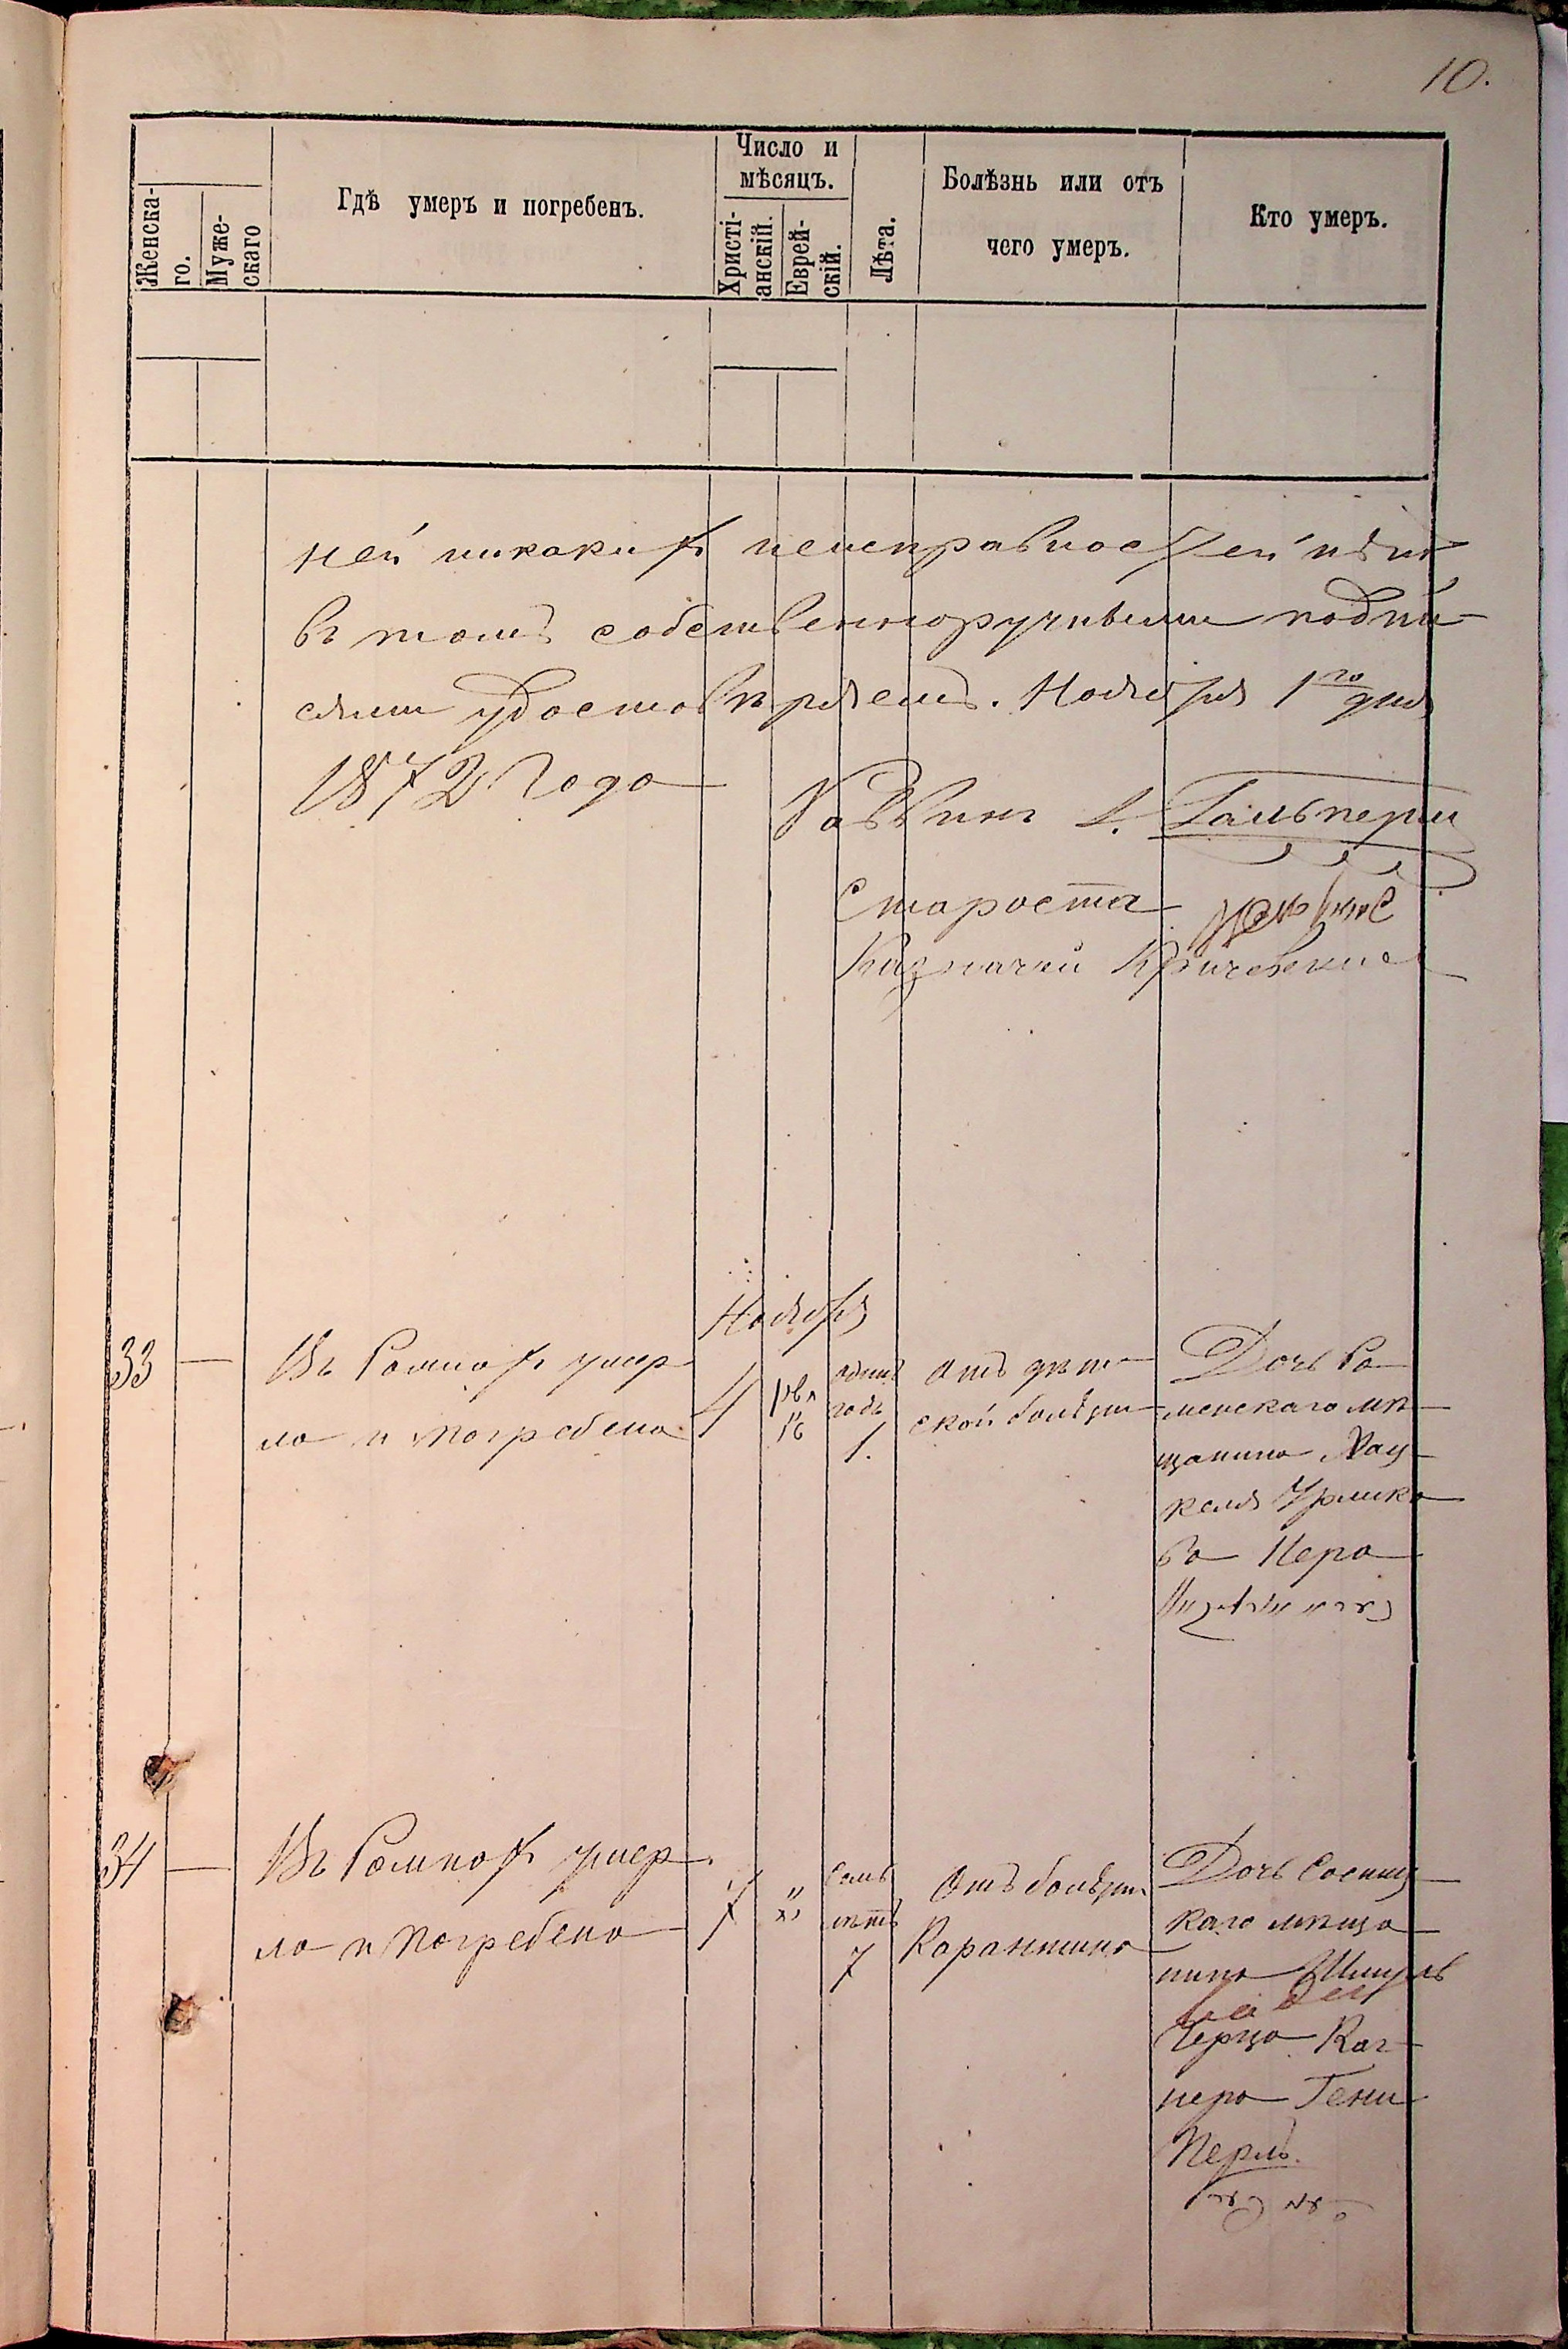 10.
Женска-
го.
Муже-
скаго
Гдѣ умеръ и погребенъ.
Число и
мѣсяцъ.
Христі-
анскій.
Еврей-
скій.
Лѣта.
Болѣзнь или отъ
чего умеръ.
Кто умеръ.
ней никакихъ неисправностей нѣтъ
въ томъ собственноручными подпи-
сями удостовѣряемъ. Ноября 1го дня
1872 Года
Раввинъ Гальперин
Староста
Казначей Кричевский
Ноября
33 — Въ Ромнахъ умер-
ла и погребена
4
одинъ
годъ
1.
Отъ дѣт-
ской болѣзни
Дочь Ро-
менскаго мѣ-
щанина Хац-
келя
Пера
34 — Въ Ромнахъ умер-
ла и погребена
7
"
семь
лѣтъ
7
Отъ болѣзни
Карантина
Дочь Сосниц-
каго мѣща-
нина Шмуль
Герца Каг-
нера Гени
Перль.